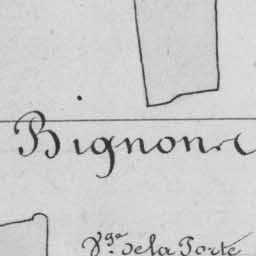 Bignone
Vge de la Porte